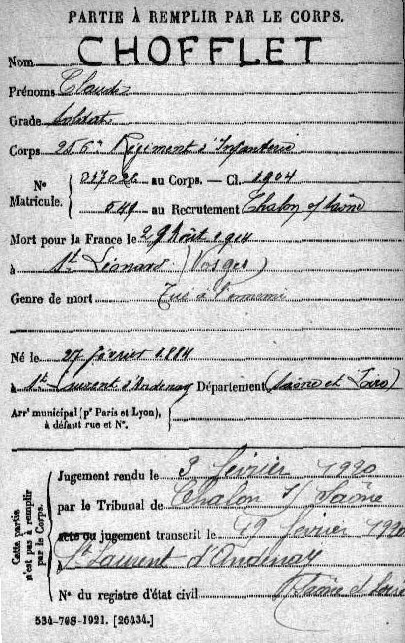 PARTIE À REMPLIR PAR LE CORPS.
Nom CHOFFLET
Prénoms Claude
Grade Soldat
Corps 256e Régiment d'Infanterie
No Matricule. au Corps. — Cl. 1904
549 au Recrutement Chalon s/ Saône
Mort pour la France le 29 Août 1914
à St Léonard (Vosges)
Genre de mort Tué à l'ennemi
Né le 27 février 1884
à St Laurent d'Andenay Département (Saône et Loire)
Arrt municipal (pr Paris et Lyon), à défaut rue et No.
Cette partie n'est pas remplir par le Corps.
Jugement rendu le 3 février 1920
par le Tribunal de Chalon s/ Saône
acte ou jugement transcrit le 19 février 1920
à St Laurent d'Andenay
(Saône et Loire)
No du registre d'état civil
534-708-1921. [26434.]